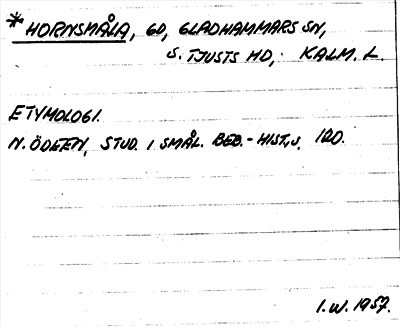 * HORNSMÅLA, GD, GLADHAMMARS SN,
S. TJUSTS HD, KALM. L.
ETYMOLOGI.
N. ÖDEEN, STUD. I SMÅL. BEB.-HIST., S. 120.
I.W. 1957.